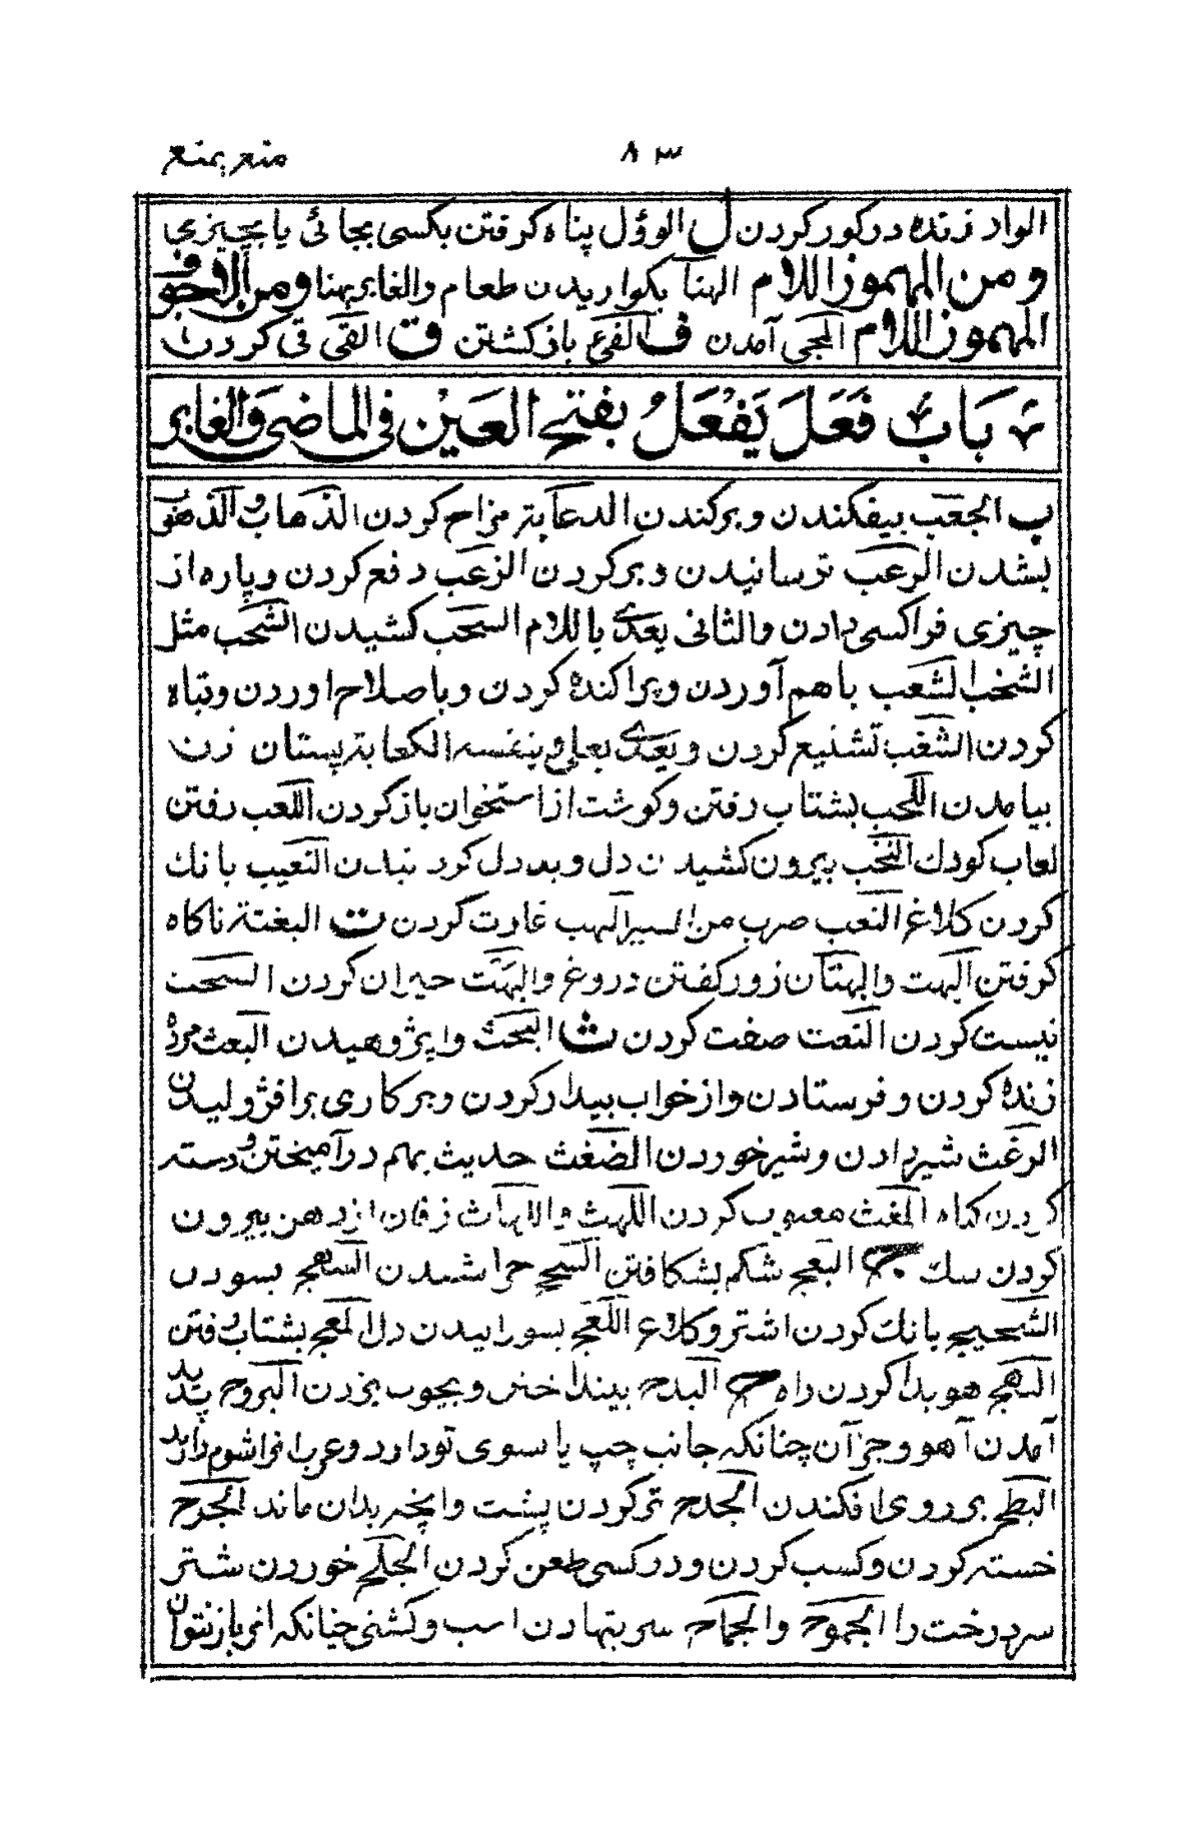 ۸۳ منع یمنع
الواد زنده در کور کردن ل الوؤل پناه کرفتن بکسی بجائی یا بچیزی
ومن المهموز اللام الهنآ بکواریدن طعام والغابر یهنا ومن الاجوف
المهموز اللام المجی آمدن ف الفیء باز کشتن ق القی قی کردن
باب فَعَلَ یَفْعَلُ بفتح العَیْن فی الماضی والغابر
ب الجعب بیفکندن وبرکندن الدعابة مزاح کردن الذهاب والذهوب
بشدن الرعب ترسانیدن وبر کردن الزعب دفع کردن وپاره از
چیزی فرا کسی دادن والثانی یعدی باللام السحب کشیدن الشحب مثل
الشخب الشعب باهم آوردن وپراکنده کردن وباصلاح اوردن وتباه
کردن الشغب تشنیع کردن ویعدی بعلی وبنفسه الکعابة پستان زن
بیامدن اللحب بشتاب رفتن وکوشت از استخوان باز کردن اللعب رفتن
لعاب کودك النخب بیرون کشیدن دل وبددل کردنیدن النعیب بانك
کردن کلاغ النعب ضرب من السیر النهب غارت کردن ت البغتة ناکاه
کرفتن البهت والبهتان زور کفتن دروغ والبهت حیران کردن السحت
نیست کردن النعت صفت کردن ث البحث واپژوهیدن البعث مرده
زنده کردن وفرستادن واز خواب بیدار کردن وبر کاری برافژولیدن
الرغث شیر دادن وشیر خوردن الضغث حدیث بهم درآمیختن ودسته
کردن کیاه المغث معیوب کردن اللهث واللهاث زفان از دهن بیرون
کردن سك ج البعج شکم بشکافتن السحج خراشیدن السهج بسودن
الشحیج بانك کردن اشتر وکلاغ اللعج بسورانیدن دل المعج بشتاب رفتن
النهج هویدا کردن راه ح البدح بینداختن وبچوب بزدن البروح پدید
آمدن آهو وجز آن چنانکه جانب چپ یا سوی تو دارد وعرب انرا شوم دارند
البطح بر روی افکندن الجدح تر کردن پست وانچه بدان ماند الجرح
خسته کردن وکسب کردن ودر کسی طعن کردن الجلح خوردن شتر
سر درخت را الجموح والجماح سر بنهادن اسب وکشتی چنانکه انرا باز نتوان